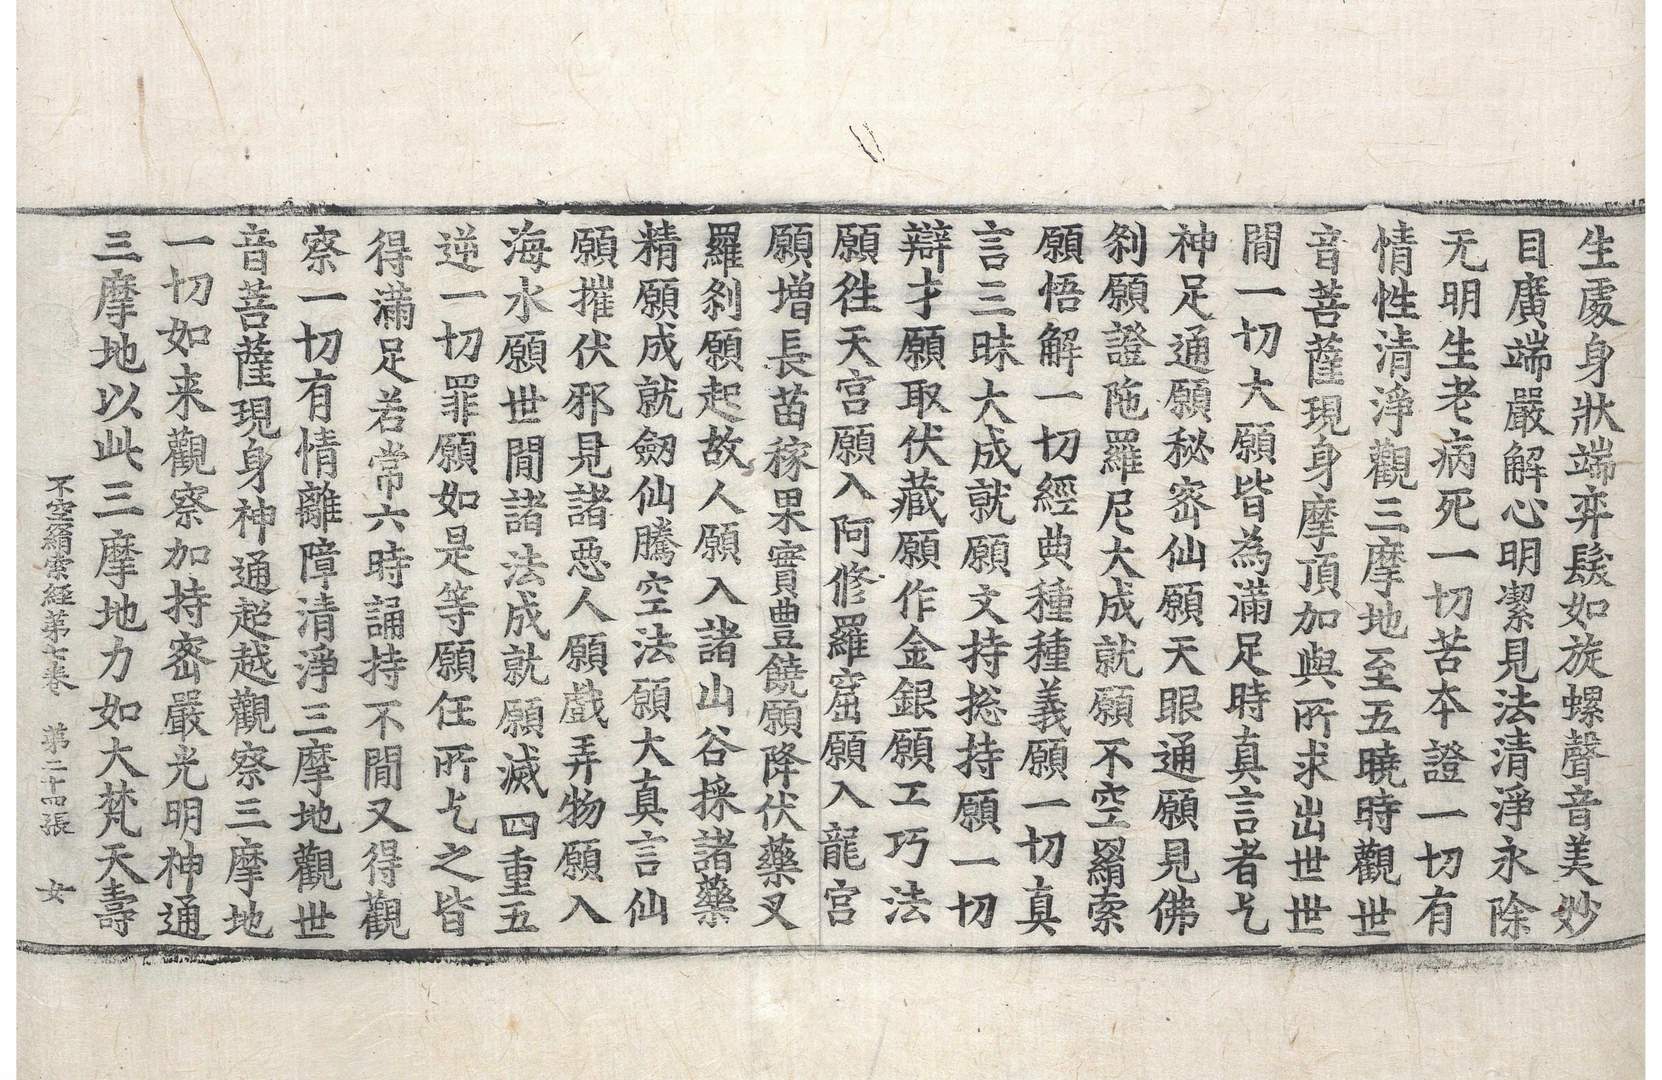 生處身狀端弈髮如旋螺聲音美妙
目廣端嚴解心明潔見法清淨永除
无明生老病死一切苦本證一切有
情性清淨觀三摩地至五曉時觀世
音菩薩現身摩頂加與所求出世世
閒一切大願皆為滿足時真言者乞
神足通願秘密仙願天眼通願見佛
刹願證陁羅尼大成就願不空羂索
願悟解一切經典種種義願一切真
言三昧大成就願文持揔持願一切
辯才願取伏藏願作金銀願工巧法
願往天宮願入阿修羅窟願入龍宮
願增長苗稼果實豊饒願降伏藥叉
羅刹願起故人願入諸山谷採諸藥
精願成就劒仙騰空法願大真言仙
願摧伏邪見諸惡人願戲弄物願入
海水願世閒諸法成就願滅四重五
逆一切罪願如是等願任所乞之皆
得滿足若常六時誦持不閒又得觀
察一切有情離障清淨三摩地觀世
音菩薩現身神通超越觀察三摩地
一切如来觀察加持密嚴光明神通
三摩地以此三摩地力如大梵天壽
不空羂索經第七卷 第二十四張 女